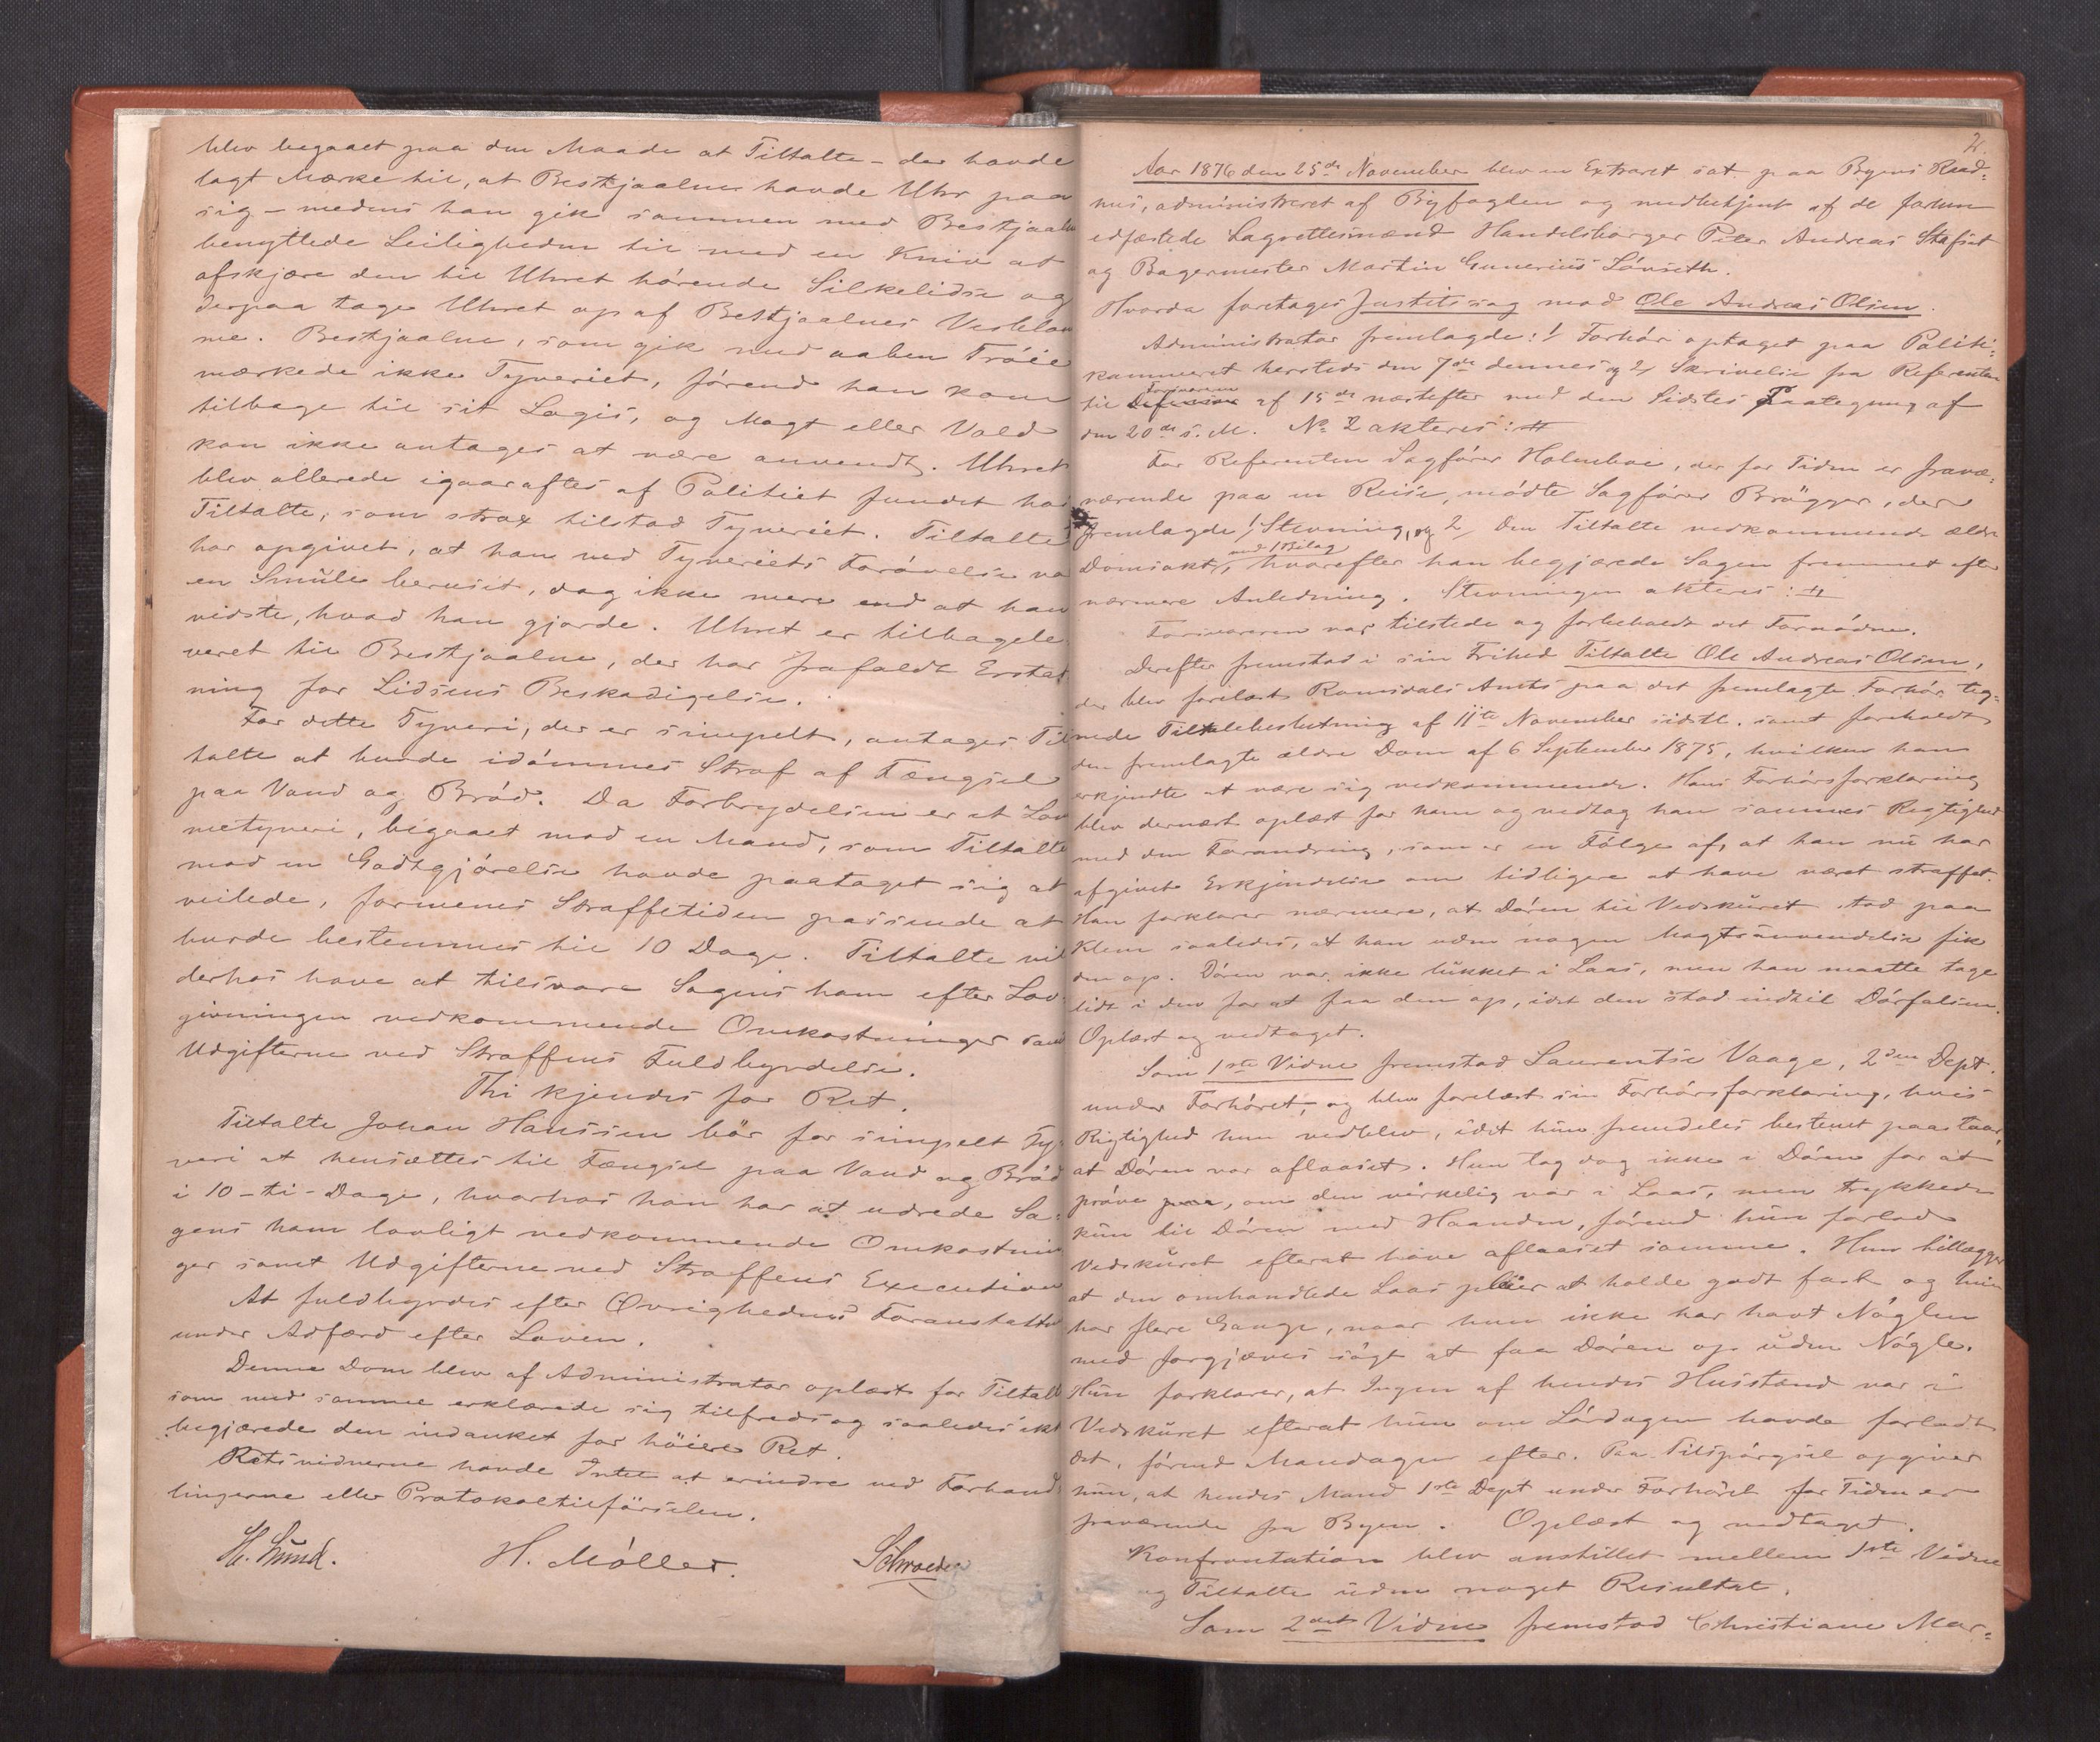 blev begaaet paa den Maade at Tiltalte – der havde
lagt Mærke til, at Bestjaalne havde Uhr paa
sig – medens han gik sammen med Bestjaalne
benyttede Leiligheden til med en Kniv at
afskjære den til Uhret hørende Silkelidse og
derpaa tage Uhret op af Bestjaalnes Vestelom
me. Bestjaalne, som gik med aaben Trøie
mærkede ikke Tyveriet, førend han kom
tilbage til sit Logis, og Magt eller Vold
kan ikke antages at være anvendt. Uhret
blev allerede igaaraftes af Politiet fundet hos
Tiltalte, som strax tilstod Tyveriet. Tiltalte
har opgivet, at han ved Tyveriets Forøvelse va
en Smule beruset, dog ikke mere end at han
vidste, hvad han gjorde. Uhret er tilbagele
veret til Bestjaalne, der har frafaldt Erstat
ning for Lidsens Beskadigelse.
For dette Tyveri, der er simpelt, antages Til
talte at burde idømmes Straf af Fængsel
paa Vand og Brød. Da Forbrydelsen er et Lom
metyveri, begaaet mod en Mand, som Tiltalte
mod en Godtgjørelse havde paataget sig at
veilede, formenes Straffetiden passende at
burde bestemmes til 10 Dage. Tiltalte vil
derhos have at tilsvare Sagens ham efter Lov-
givningen vedkommende Omkostninger samt
Udgifterne ved Straffens Fuldbyrdelse.
Thi kjendes for Ret.
Tiltalte Johan Hanssen bör for simpelt Ty-
veri at hensættes til Fængsel paa Vand og Brød
i 10 – ti – Dage, hvorhos han har at udrede Sa-
gens ham lovligt vedkommende Omkostnin
ger samt Udgifterne ved Straffens Execution
At fuldbyrdes efter Øvrighedens Foranstaltn
under Adfærd efter Loven.
Denne Dom blev af Administrator oplæst for Tiltalte
som med samme erklærede sig tilfreds og saaledes ikke
begjærede den indanket for höiere Ret.
Retsvidnerne havde Intet at erindre ved Forhand
lingerne eller Protokoltilförselen.
H. Lund. H. Möller. Schroeder
2.
Aar 1876 den 25de November blev en Extraret sat paa Byens Raad-
hus, administreret af Byfogden og medbetjent af de forhen
edfæstede Lagrettesmænd Handelsborger Peter Andreas Stafset
og Bagermester Martin Gunerius Lönseth.
Hvorda foretages Justitssag mod Ole Andreas Olsen.
Administrator fremlagde: 1/ Forhör optaget paa Politi-
kammeret hersteds den 7de dennes og 2/ Skrivelse fra Referenten
til Forsvareren af 15de næstefter med den Sidstes Paategning af
den 20de s. M. No 2 akteres:
For Referenten Sagförer Holmboe, der for Tiden er fravæ-
værende paa en Reise, mödte Sagförer Brügger, der
fremlagde 1/ Stevning, og 2/ den Tiltalte vedkommende ældre
Domsakt, med 1 Bilag hvorefter han begjærede Sagen fremmet efter
nærmere Anledning. Stevningen akteres:
Forsvareren var tilstede og forbeholdt det Fornödne.
Derefter fremstod i sin Frihed Tiltalte Ole Andreas Olsen,
der blev forelæst Romsdals Amts paa det fremlagte Forhör teg-
nede Tiltalebeslutning af 11te November sidstl. samt foreholdt
den fremlagte ældre Dom af 6 September 1875, hvilken han
erkjendte at være sig vedkommende. Hans Forhörsforklaring
blev dernæst oplæst for ham og vedtog han sammes Rigtighed
med den Forandring, som er en Fölge af, at han nu har
afgivet Erkjendelse om tidligere at have været straffet.
Han forklarer nærmere, at Dören til Vedskuret stod paa
Klem saaledes, at han uden nogen Magtsanvendelse fik
den op. Dören var ikke lukket i Laas, men han maatte tage
lidt i den for at faa den op, idet den stod indtil Dörfalsen.
Oplæst og vedtaget.
Som 1ste Vidne fremstod Laurentse Vaage, 2den Dept.
under Forhöret, og blev forelæst sin Forhörsforklaring, hvis
Rigtighed hun vedblev, idet hun fremdeles bestemt paastaar,
at Dören var aflaaset. Hun tog dog ikke i Dören for at
pröve, om den virkelig var i Laas, men trykkede
kun til Dören med Haanden, förend hun forlod
Vedskuret efterat have aflaaset samme. Hun tillægger
at den omhandlede Laas pleier at holde godt fast og hun
har flere Gange, naar hun ikke har havt Nöglen
med forgjæves sögt at faa Dören op uden Nögle.
Hun forklarer, at Ingen af hendes Husstand var i
Vedskuret efterat hun om Lördagen havde forladt
det, förend Mandagen efter. Paa Tilspörgsel opgiver
hun, at hendes Mand 1ste Dept under Forhöret for Tiden er
fraværende fra Byen. Oplæst og vedtaget.
Konfrontation blev anstillet mellem 1ste Vidne
og Tiltalte uden noget Resultat.
Som 2det Vidne fremstod Christiane Mar-